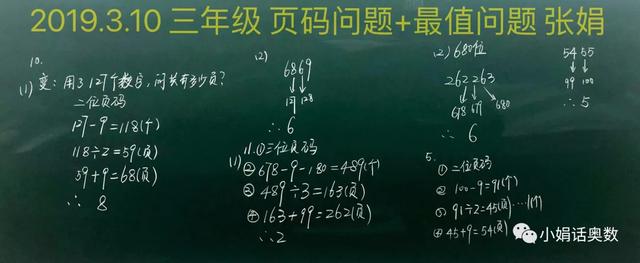 2019.3.10 三年级 页码问题+最值问题 张娟
10.
(1) 变：用了127个数字，问共有多少页？
二位页码
127-9=118(个)
118÷2=59(页)
59+9=68(页)
∴ 8
(2)
6869
↓↓
127 128
∴ 6
11.①三位页码
(1) ② 678-9-180=489(个)
③ 489÷3=163(页)
④ 163+99=262(页)
∴2
(2) 680位
262263
678 679 680
∴ 6
5.
① 二位页码
② 100-9=91(个)
③ 91÷2=45(页)……1(个)
④ 45+9=54(页)
5455
↓↓
99 100
∴ 5
小娟话奥数